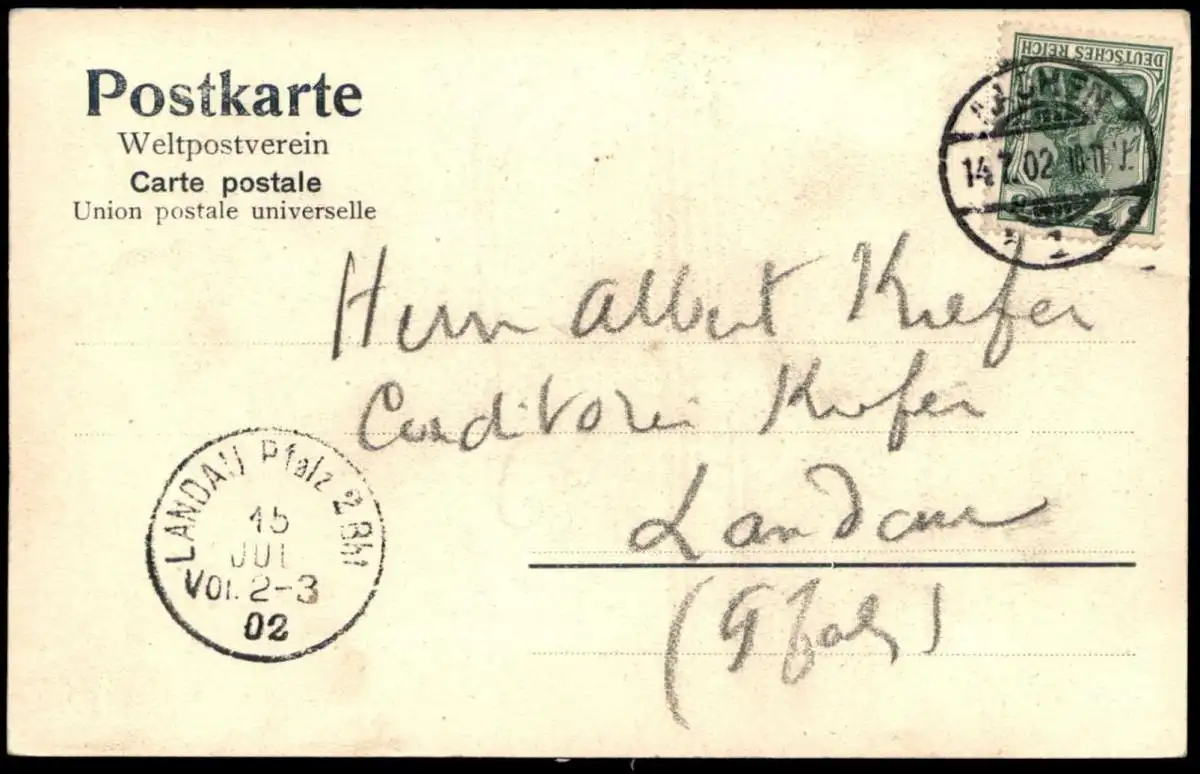 Postkarte
Weltpostverein
Carte postale
Union postale universelle
DEUTSCHES REICH
AACHEN
14.7.02 10-11 V.
* 1 a
Herrn Albert Kiefer
Conditorei Kiefer
Landau
(Pfalz)
LANDAU Pfalz 2 Bhf
15
JUL
VOr. 2-3
02